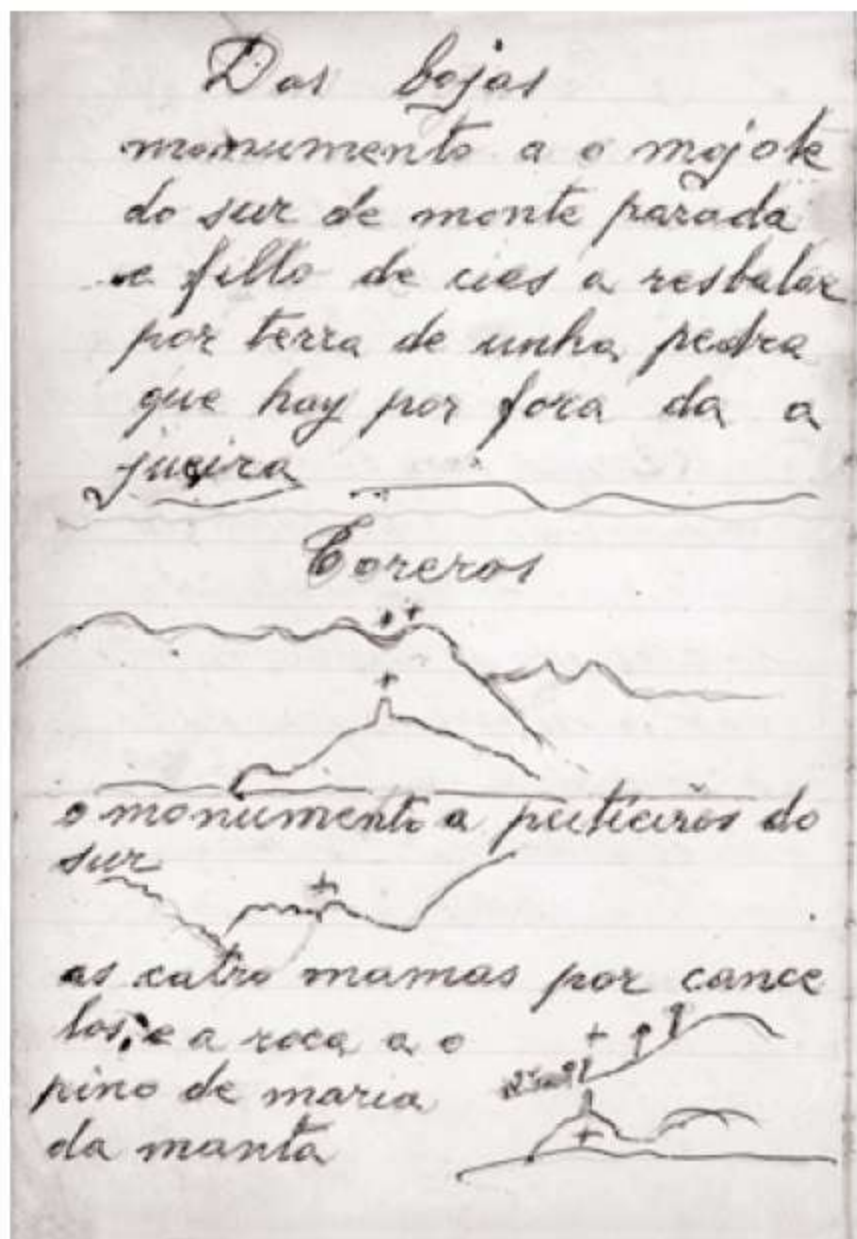 Das bojas
monumento a o mojote
do sur de monte parada
e fillo de cies a resbalar
por terra de unha pedra
que hay por fora da a
jueira
Coreros
o monumento a puticeiros do
sur
as catro mamas por cance
los, e a roca a o
pino de maria
da manta